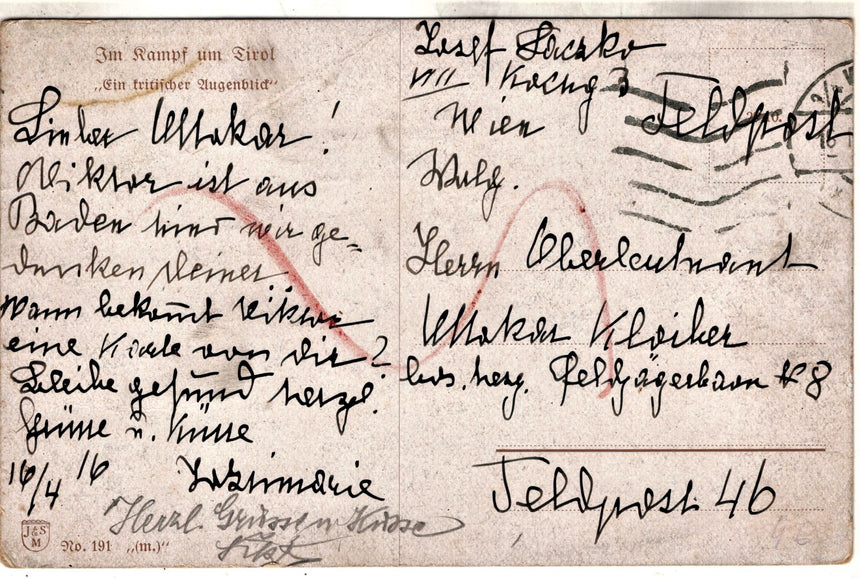 Im Kampf um Tirol
„Ein kritischer Augenblick“
Lieber Ottokar!
Viktor ist aus
Baden hind wir ge=
denken deiner
Wann bekommt Viktor
eine Karte von dir?
Bleibe gesund herzl.
Grüsse u. Küsse
16/4 16
Herzl. Grüsse u Küsse
J & S
M
No. 191 „(m.)“
Josef
VIII
3
Wien
Feldpost
Herrn Oberleutnant
Ottokar
bos. herz. Feldjägerbaon № 8
Feldpost 46